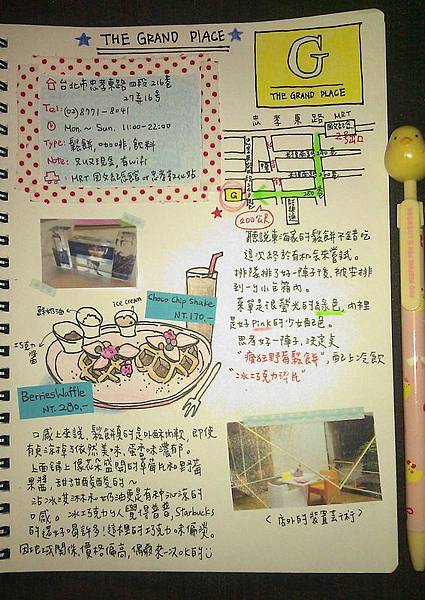 THE GRAND PLACE
台北市忠孝東路四段216巷
27弄16號
Tel: (02) 8771-8041
Mon. ~ Sun. 11:00-22:00
Type: 鬆餅, 飲料
Note: 有wifi
MRT 國父紀念館 or 忠孝
G
THE GRAND PLACE
忠孝東路
MRT
國父紀念館
2號出口
G
200公尺
聽說東海家的鬆餅不錯吃
這次終於有機會嘗試。
排隊排了好一陣子後, 被安排
到一個小包箱內。
菜單是很螢光的綠色, 內裡
是好Pink的少女色。
思考好一陣子, 決定衷
"瘋狂野莓鬆餅", 配上冷飲
"冰巧克力碎片"
鮮奶油
ice cream
巧克力醬
Choco Chip Shake
NT. 170.-
Berries Waffle
NT. 280.-
口感上來說, 鬆餅真的是外酥內軟 即使
有點涼掉了依然美味, 蛋香味濃郁。
上面鋪上像花朵盛開的草莓片和野莓
果醬, 甜甜酸酸的~
沾冰淇淋
口感。冰巧克力個人覺得普普, Starbucks
的這好喝許多! 這裡的巧克力味偏淡。
因地域關係, 價格偏高, 偶爾來一次OK的
< 店外的裝置藝術 >